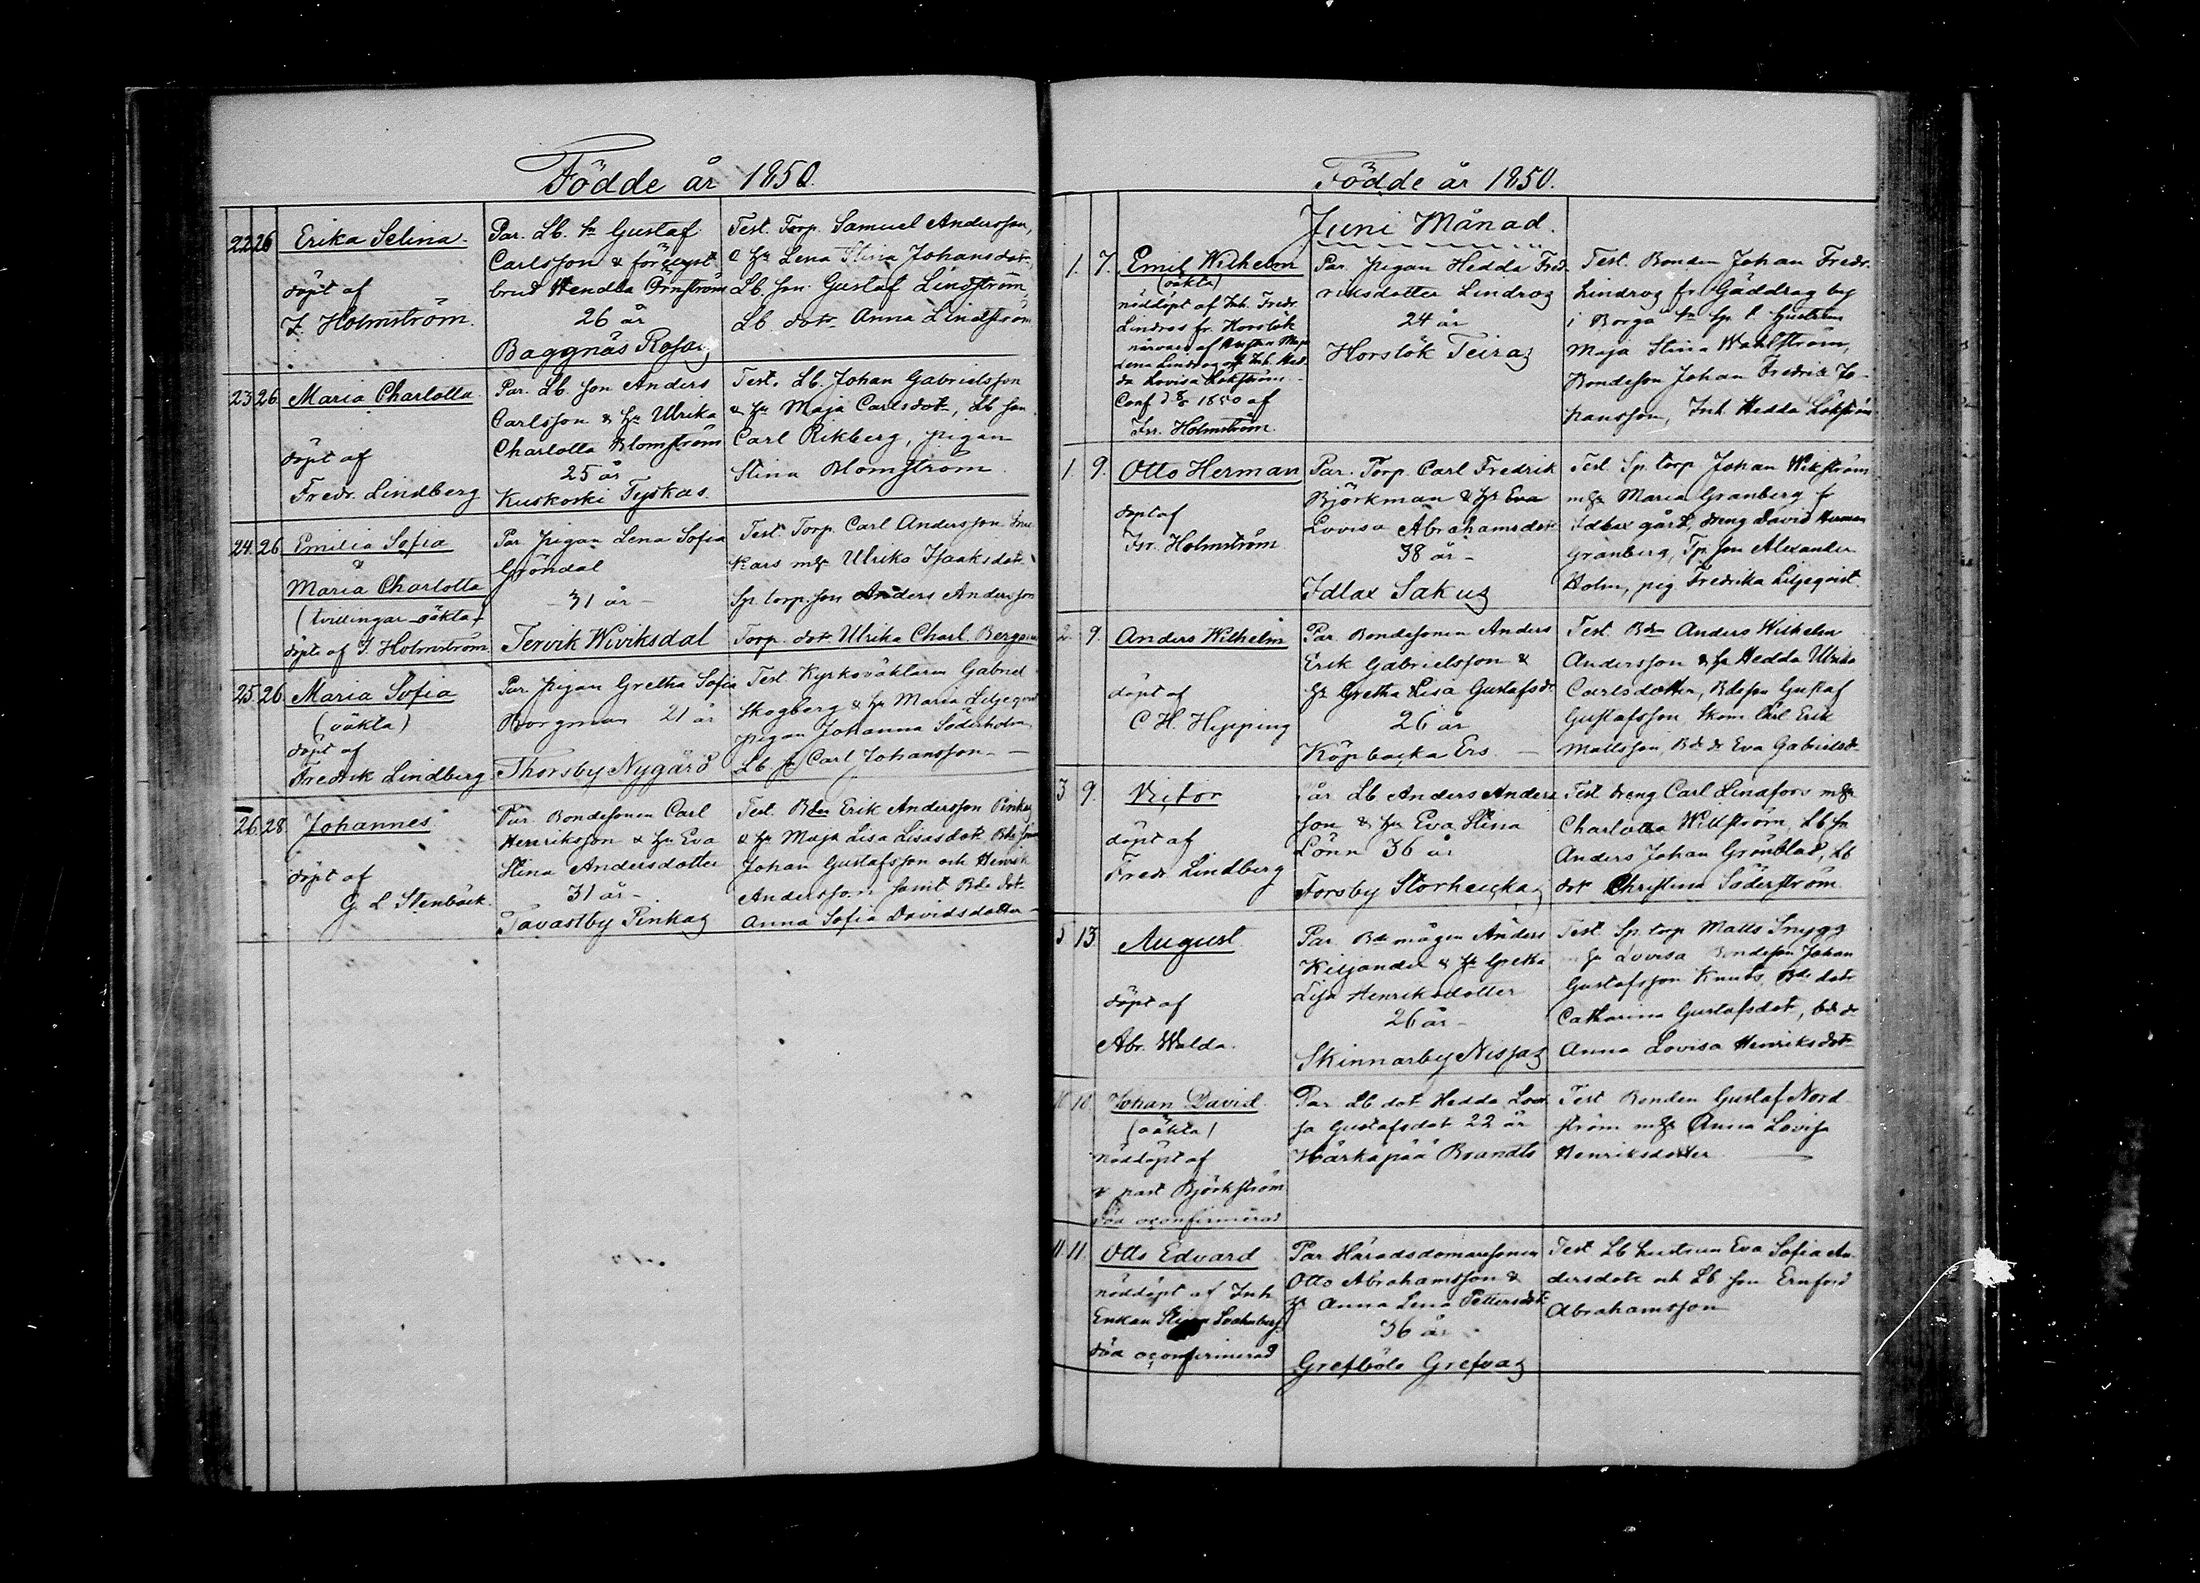 Födde år 1850.
22 26 Erika Selina.
döpt af
F. Holmström.
Par. Lb. sn Gustaf
Carlsson &
brud Wendla Örnström
26 år
Baggnäs Rosas
Test. Torp. Samuel Andersson,
& hu Lena Stina Johansdotr,
Lb. son Gustaf Lindström
Lb. dotr Anna Lindström
23 26 Maria Charlotta
döpt af
Fredr. Lindberg
Par. Lb. son Anders
Carlsson & hu Ulrika
Charlotta Blomström
25 år
Kuskoski Tyskas.
Test. Lb. Johan Gabrielsson
& hu Maja Carlsdotr, Lb son
Carl Rikberg, pigan
Stina Blomström.
24. 26 Emilia Sofia
&
Maria Charlotta
(tvillingar oäkta)
döpte af F. Holmström
Par pigan Lena Sofia
Gröndal
- 31 år -
Tervik Wiviksdal
Test. Torp. Carl Andersson
Kars m hu Ulrika Isaaksdotr
Sp. torp. son Anders Andersson
Torp. dotr Ulrika Charl.
25. 26 Maria Sofia
(oäkta)
döpt af
Fredrik Lindberg
Par. pigan Gretha Sofia
Borgman 21 år
Thorsby Nygård
Test Kyrkoväktaren Gabriel
Skogberg & hu Maria Liljeqvist
pigan Johanna Söderholm
Lb. sn Carl Johansson -
26. 28 Johannes
döpt af
G. L. Stenbäck.
Par. Bondesonen Carl
Henriksson & hu Eva
Stina Andersdotter
31 år -
Tavastby Pinkas
Test. Bden Erik Andersson Pinkas
& hu Maja Lisa Lisasdotr Bde son
Johan Gustafsson och Henrik
Andersson samt Bde dotr
Anna Sofia Davidsdotter -
Födde år 1850.
Juni Månad.
1. 7. Emil Wilhelm
(oäkta)
nöddöpt af Inh. Fredr.
Lindros fr. Horslök
närvaro af
Lena Lindros &
da Lovisa Lökström
Conf. d. 8/6 1850 af
Fr. Holmström.
Par. pigan Hedda Fred-
riksdotter Lindros
24 år
Horslök Teiras
Test. Bonden Johan Fredr.
Lindros fr. Gäddrag by
i Borgå sn
Maja Stina Wahlström,
Bondeson Johan Fredrik Jo-
hansson, Inh. Hedda Lökström
1. 9. Otto Herman
döpt af
Fr. Holmström
Par. Torp. Carl Fredrik
Björkman & hu Eva
Lovisa Abrahamsdotr
38 år -
Idlax Sakus
Test Sp. torp Johan Wikström
m hu Maria Granberg fr
Idlax gård, dreng David Herman
Granberg, Tp. son Alexander
Holm, pig Fredrika Liljeqvist
2. 9. Anders Wilhelm
döpt af
C. H. Hipping
Par Bondesonen Anders
Erik Gabrielsson &
hu Gretha Lisa Gustafsdr
26 år
Köpbacka Ers. -
Test. Bden Anders Wilhelm
Andersson & hu Hedda Ulrika
Carlsdotter, Bdeson Gustaf
Gustafsson Skom. Carl Erik
Mattsson, Bde dr Eva Gabrielsdr
3 9. Viktor
döpt af
Fredr Lindberg
Par Lb Anders Anders
son & hu Eva Stina
Lönn 36 år
Forsby Storheickas
Test dreng Carl Lindfors m hu
Charlotta Willström, Lb sn
Anders Johan Grönblad, Lb
dotr Christina Söderström
5 13 August
döpt af
Abr. Walda.
Par Bde mågen Anders
Kiljander & hu Gretha
Lisa Henriksdotter
26 år -
Skinnarby Nissas
Test. Sp. torp Matts Snygg
m hu Lovisa Bondeson Johan
Gustafsson Knubs, Bde dotr
Catharina Gustafsdotr, bde dr
Anna Lovisa Henriksdotr
10 10 Johan David
(oäkta)
nöddöpt af
v past Björkström
död oconfirmerad
Par Lb dotr Hedda Lovi
sa Gustafsdotr 22 år
Härkäpää Brandts
Test Bonden Gustaf Nord
ström m hu Anna Lovisa
Henriksdotter
11 11. Otto Edvard
nöddöpt af Inh
Enkan
död oconfirmerad
Par Häradsdomaresonen
Otto Abrahamsson &
hu Anna Lena Pettersdotr
36 år
Grefböle Grefvas
Test Lb hustrun Eva Sofia An-
dersdotr och Lb son Ernford
Abrahamsson